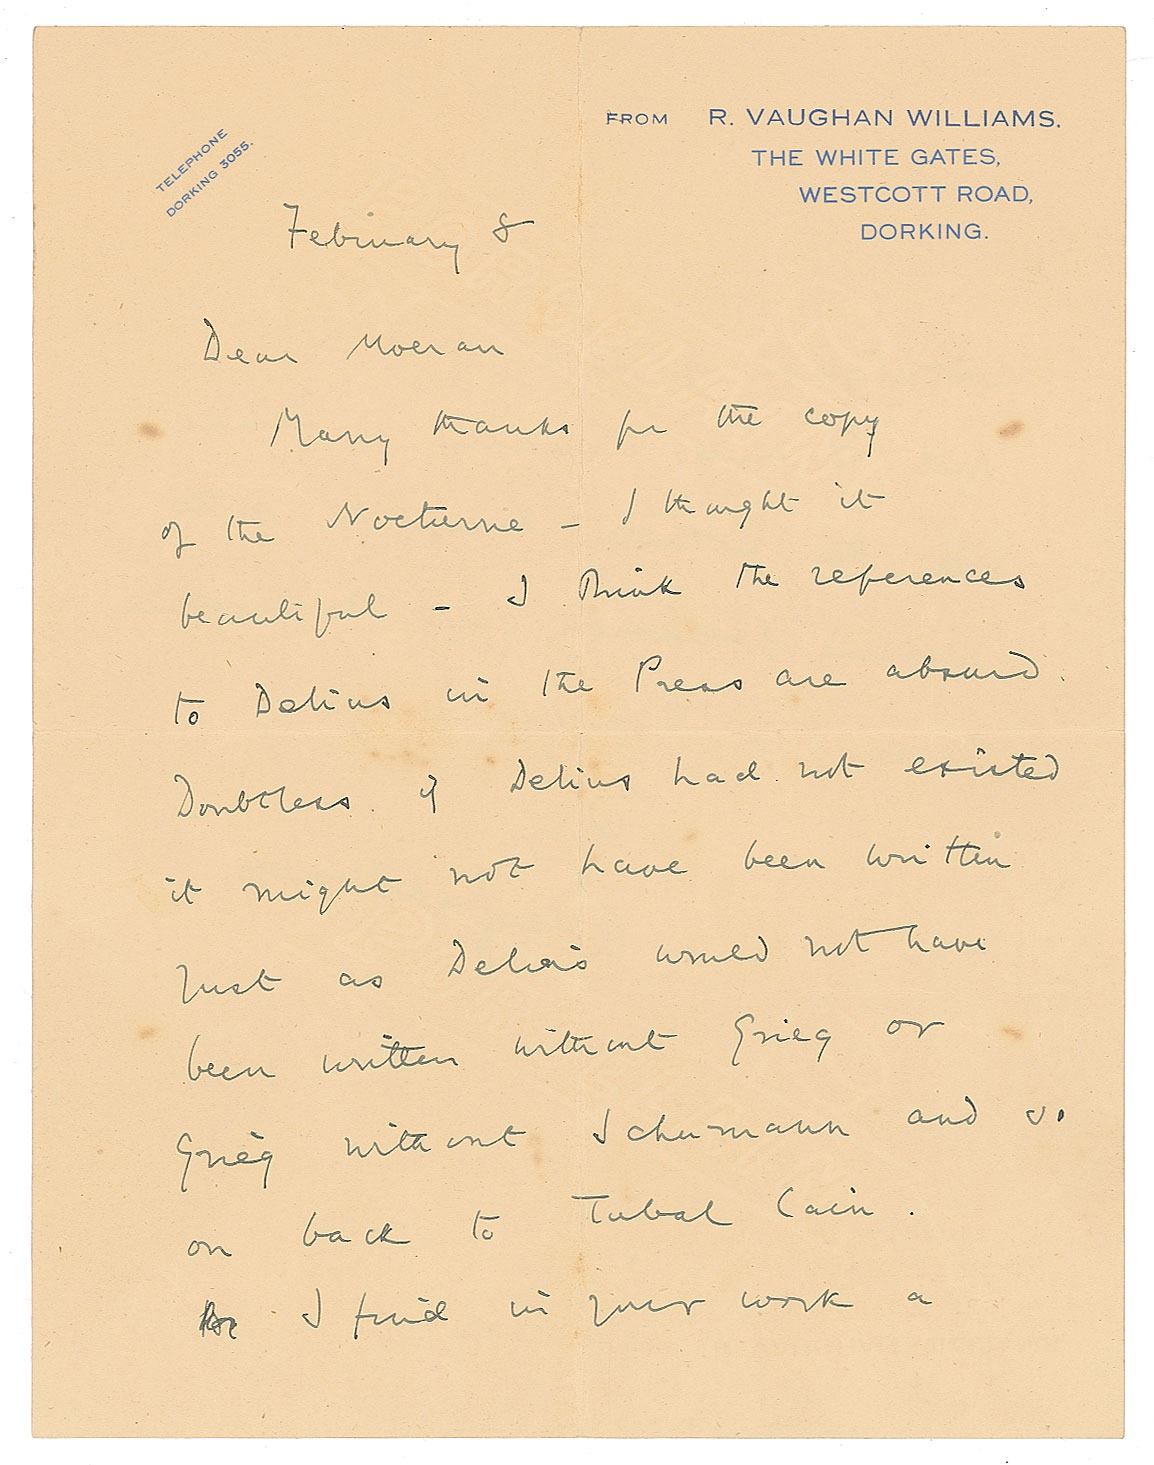 TELEPHONE
DORKING 3055.
FROM R. VAUGHAN WILLIAMS.
THE WHITE GATES,
WESTCOTT ROAD,
DORKING.
February 8
Dear Moeran
Many thanks for the copy
of the Nocturne – I thought it
beautiful – I think the references
to Delius in the Press are absurd.
Doubtless if Delius had not existed
it might not have been written
just as Delius would not have
been written without Grieg or
Grieg without Schumann and so
on back to Tubal Cain.
I find in your work a